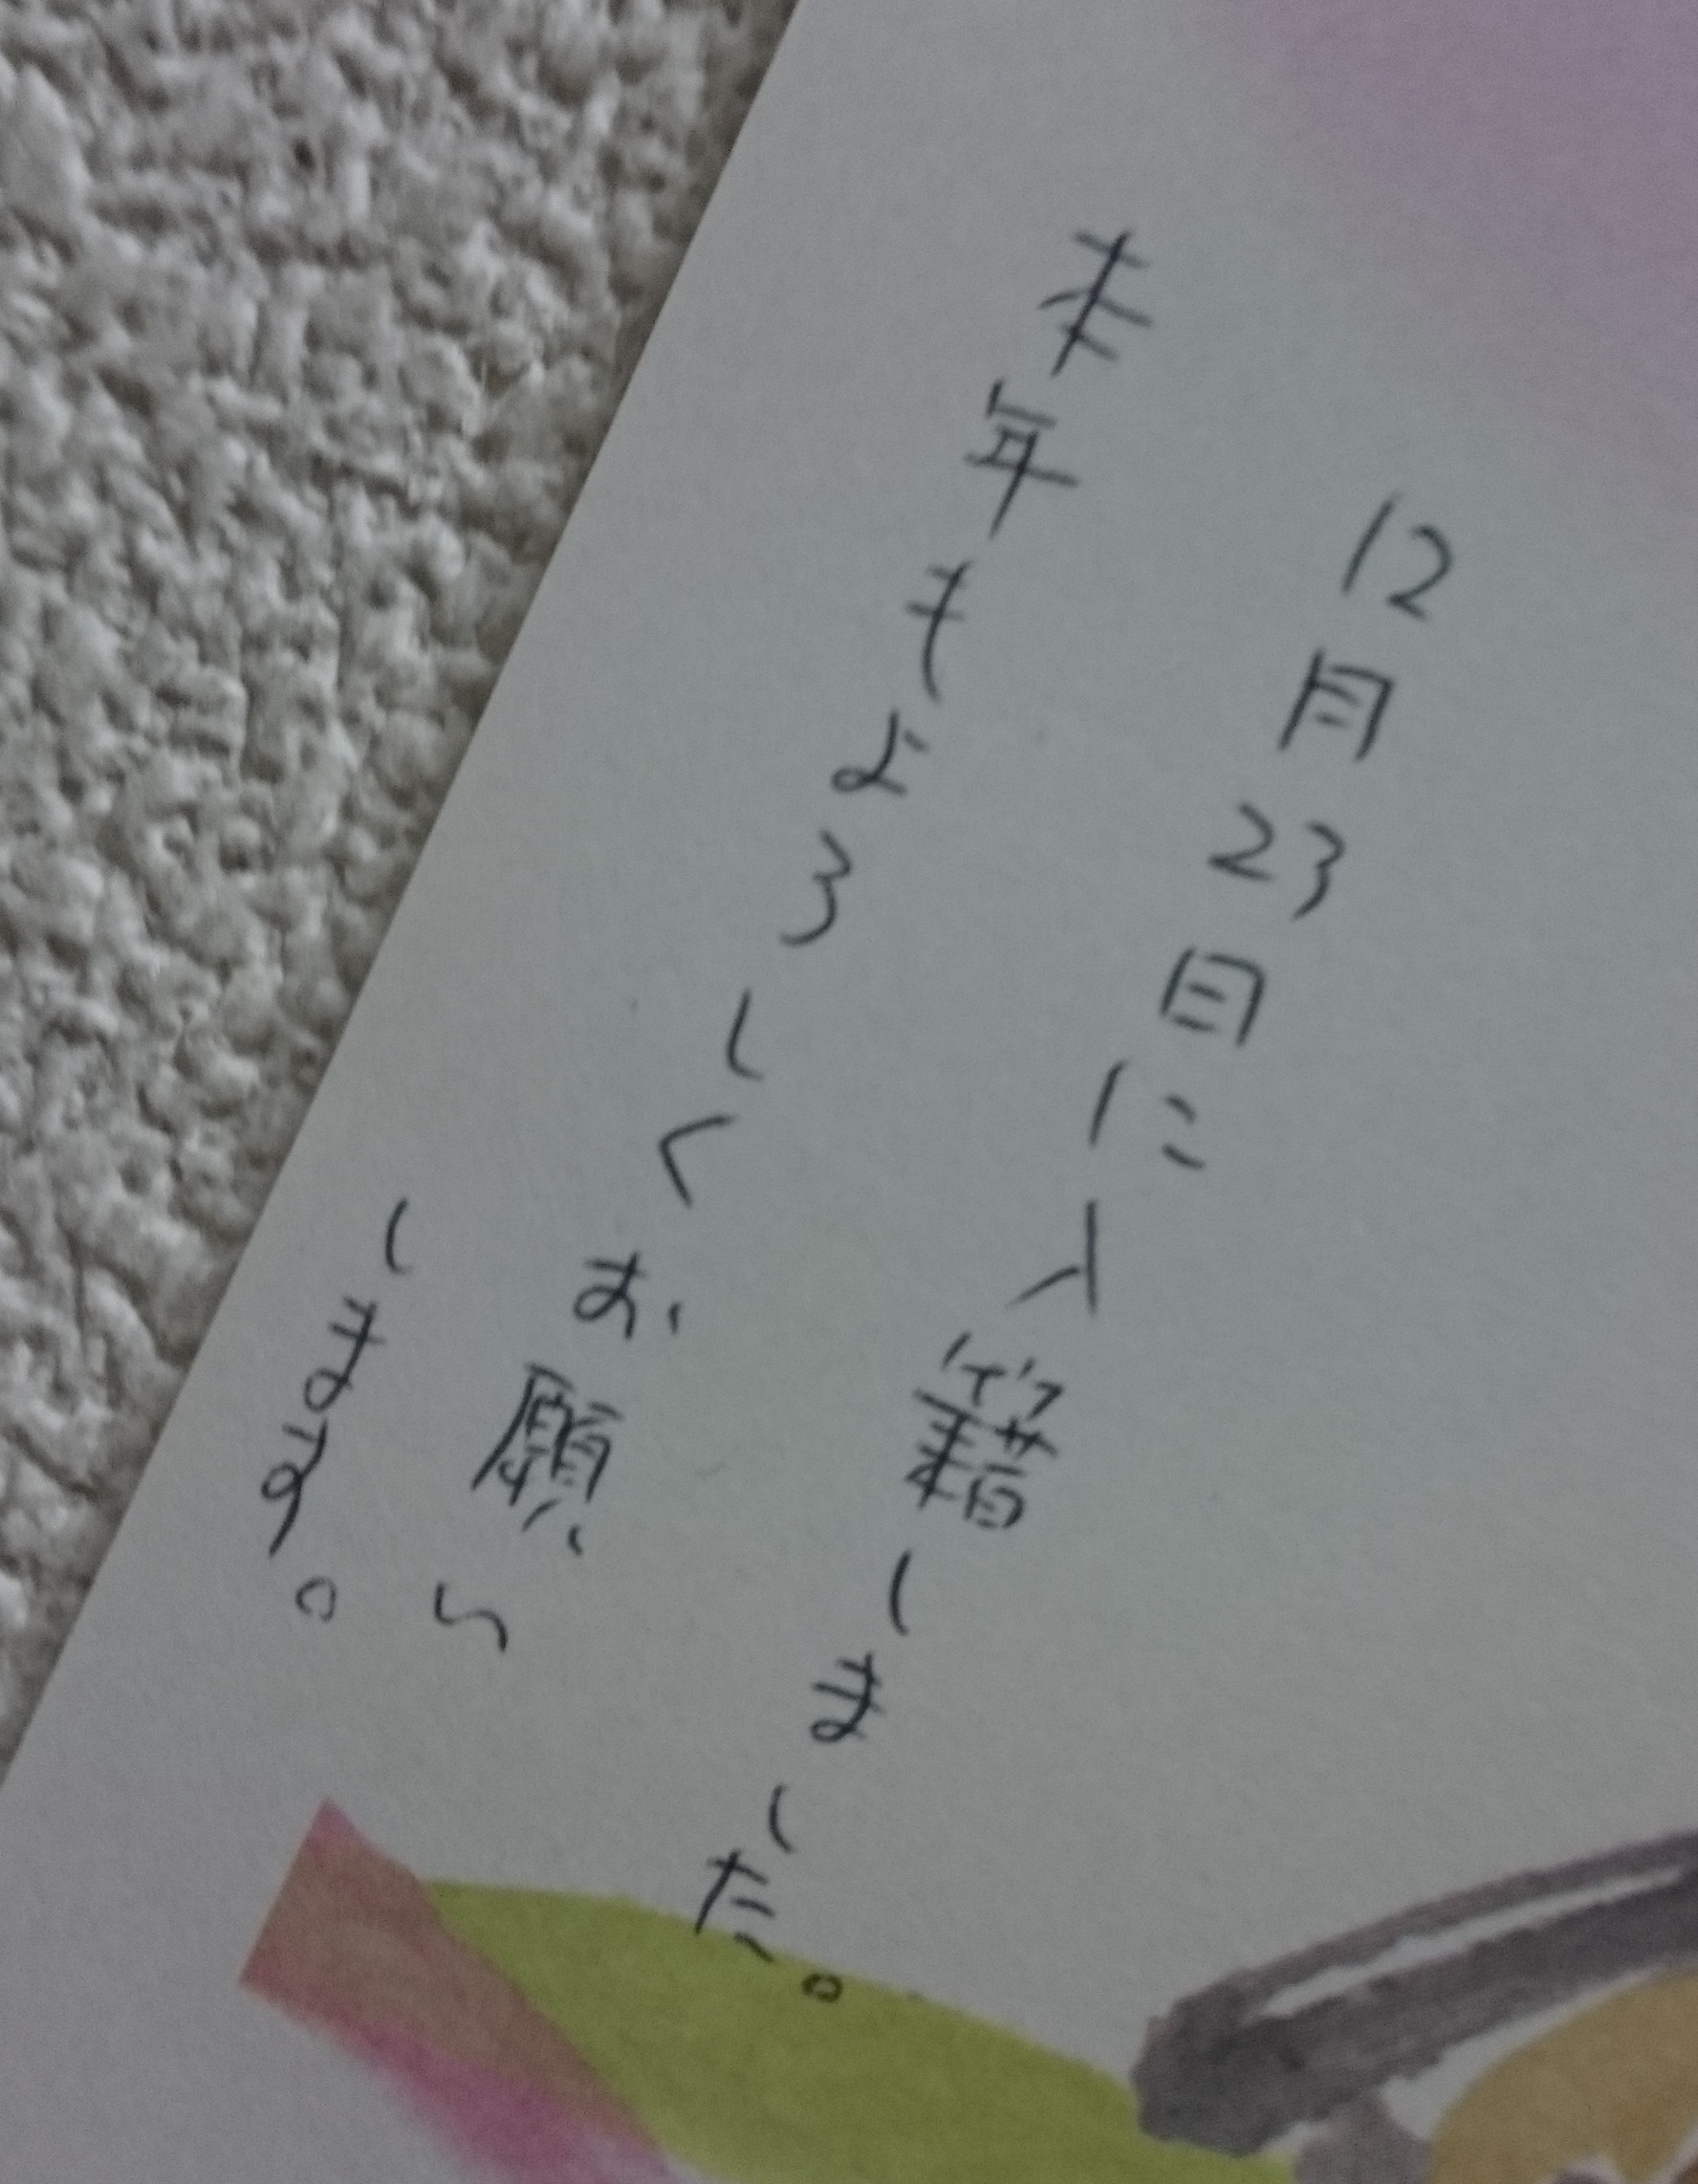 12月23日に入籍しました。
本年もよろしくお願い
します。